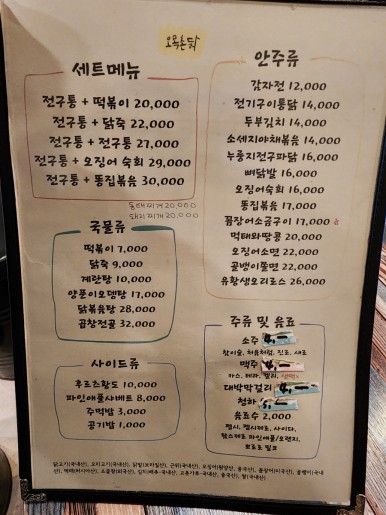 오목촌닭
세트메뉴
전구통 + 떡볶이 20,000
전구통 + 닭죽 22,000
전구통 + 전구통 27,000
전구통 + 오징어 숙회 29,000
전구통 + 똥집볶음 30,000
동태찌개 20,000
돼지찌개 20,000
국물류
떡볶이 7,000
닭죽 9,000
계란탕 10,000
얌푼이오뎅탕 17,000
닭볶음탕 28,000
곱창전골 32,000
사이드류
후르츠황도 10,000
파인애플샤베트 8,000
주먹밥 3,000
공기밥 1,000
안주류
감자전 12,000
전기구이통닭 14,000
두부김치 14,000
소세지야채볶음 14,000
누룽지전구파닭 16,000
뼈닭발 16,000
오징어숙회 16,000
똥집볶음 17,000
꼼장어소금구이 17,000
먹태와땅콩 20,000
오징어소면 22,000
골뱅이쫄면 22,000
유황생오리로스 26,000
주류 및 음료
소주
참이슬, 처음처럼, 진로, 새로
맥주
카스, 테라, 켈리,
대박막걸리
청하
음료수 2,000
펩시, 펩시제로, 사이다,
탐스제로 파인애플/오렌지,